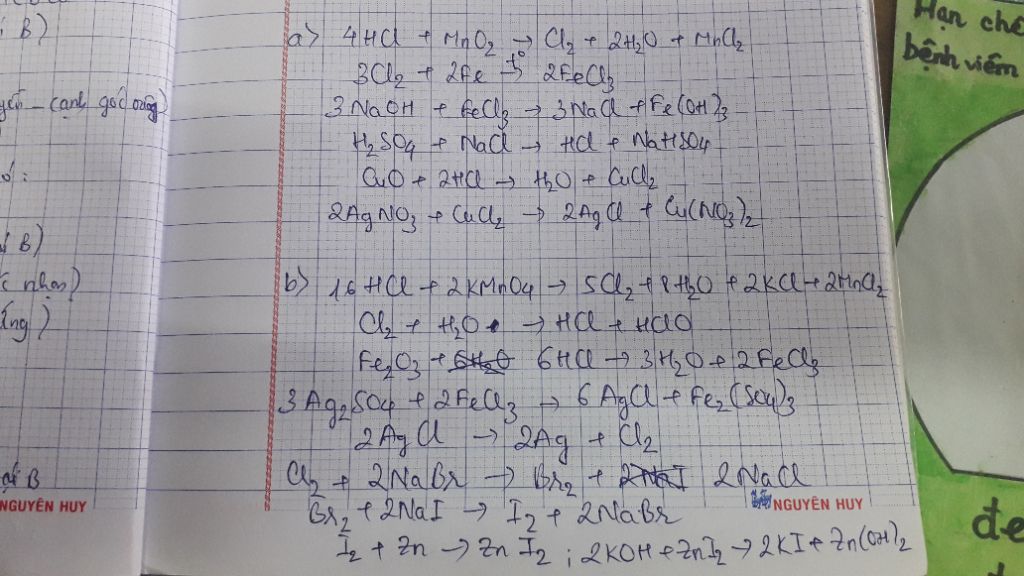 B)
cạnh góc vuông)
B)
c nhọn)
B
NGUYÊN HUY
a) 4HCl + MnO₂ → Cl₂ + 2H₂O + MnCl₂
3Cl₂ + 2Fe t°→ 2FeCl₃
3NaOH + FeCl₃ → 3NaCl + Fe(OH)₃
H₂SO₄ + NaCl → HCl + NaHSO₄
CuO + 2HCl → H₂O + CuCl₂
2AgNO₃ + CuCl₂ → 2AgCl + Cu(NO₃)₂
b) 16HCl + 2KMnO₄ → 5Cl₂ + 8H₂O + 2KCl + 2MnCl₂
Cl₂ + H₂O → HCl + HClO
Fe₂O₃ + 6HCl → 3H₂O + 2FeCl₃
3Ag₂SO₄ + 2FeCl₃ → 6AgCl + Fe₂(SO₄)₃
2AgCl → 2Ag + Cl₂
Cl₂ + 2NaBr → Br₂ + 2NaCl
Br₂ + 2NaI → I₂ + 2NaBr
I₂ + Zn → ZnI₂ ; 2KOH + ZnI₂ → 2KI + Zn(OH)₂
NGUYÊN HUY
Hạn chế
bệnh viêm
để